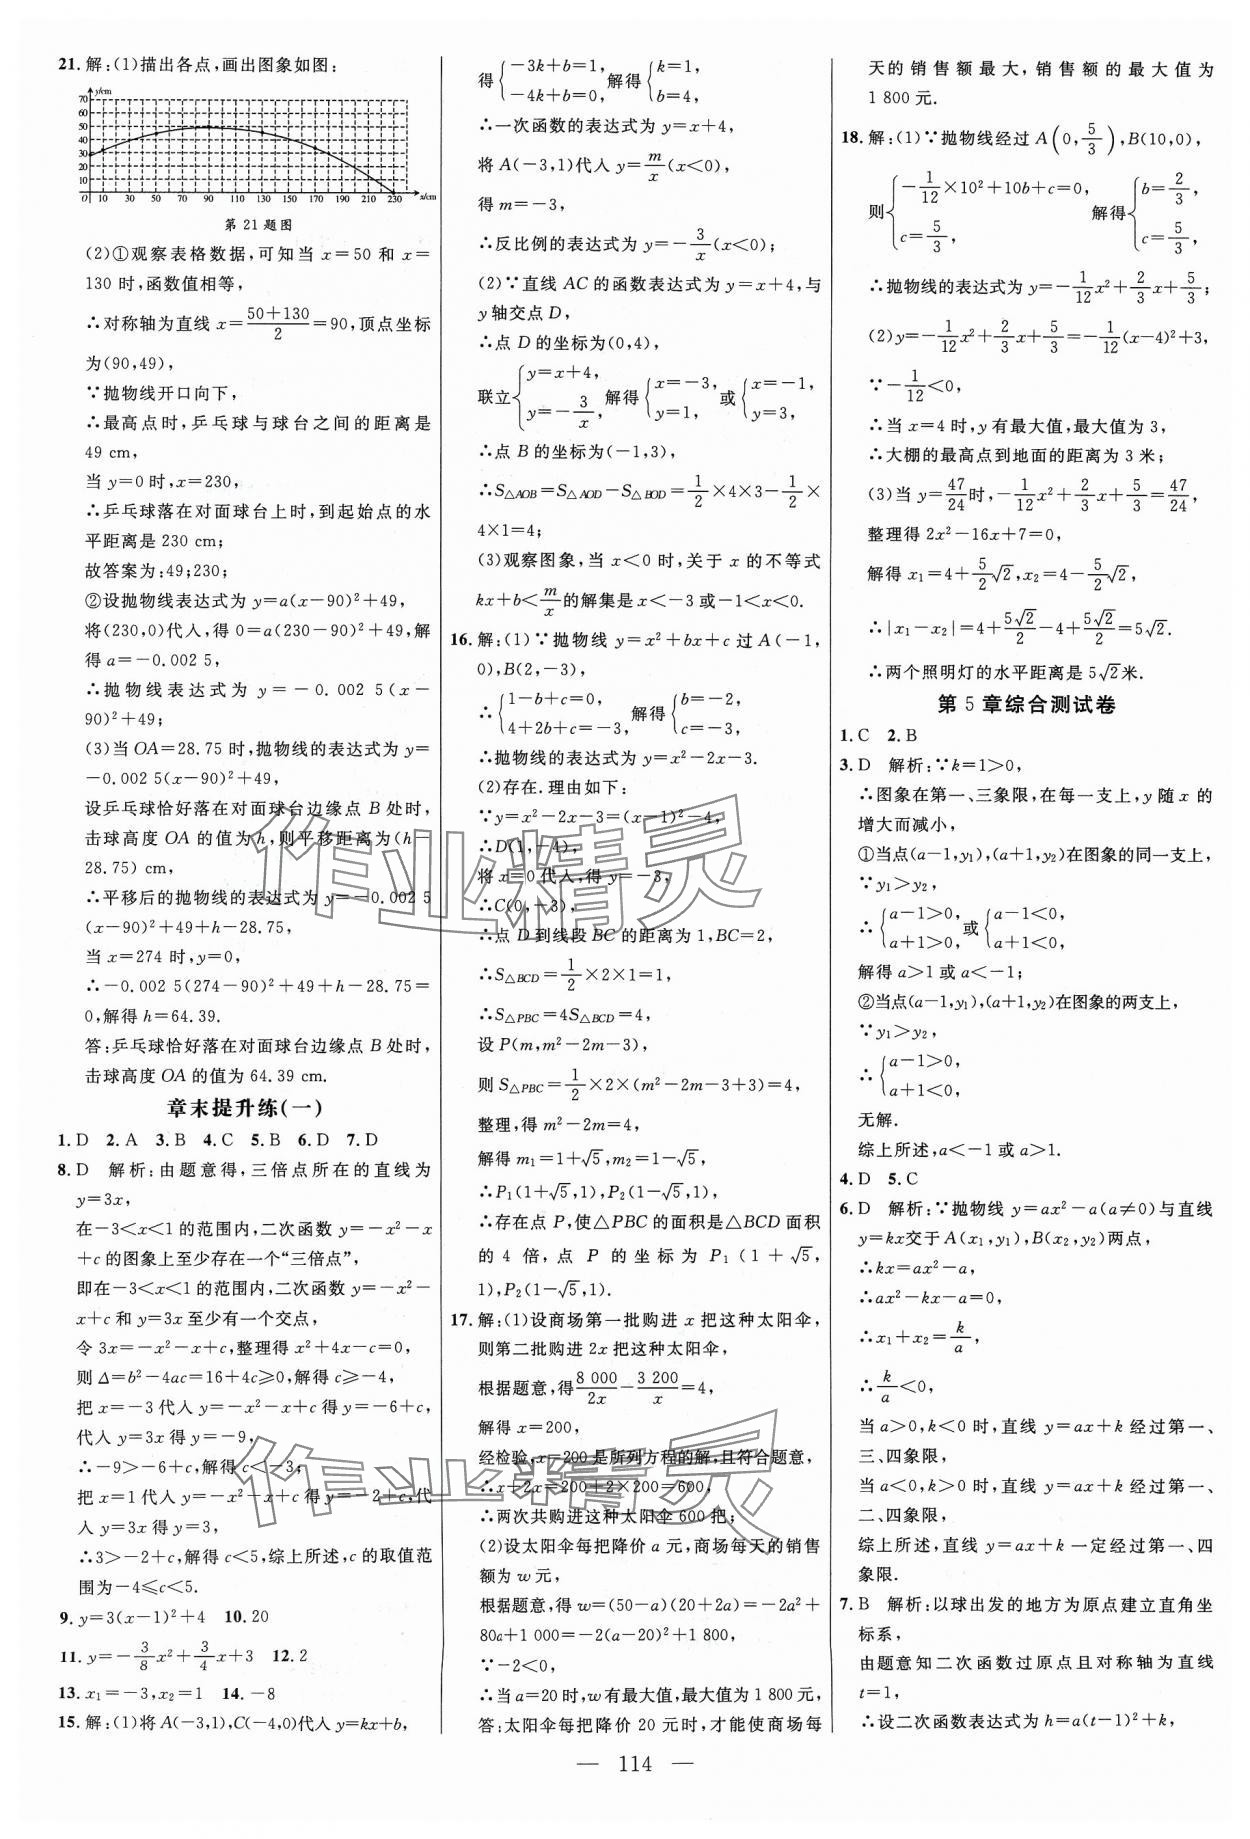 21. 解:(1)描出各点,画出图象如图:
y/cm
70
60
50
40
30
20
10
O 10 30 50 70 90 110 130 150 170 190 210 230 x/cm
第 21 题图
(2)①观察表格数据,可知当 x=50 和 x=
130 时,函数值相等,
∴对称轴为直线 x=(50+130)/2=90,顶点坐标
为(90,49),
∵抛物线开口向下,
∴最高点时,乒乓球与球台之间的距离是
49 cm,
当 y=0 时,x=230,
∴乒乓球落在对面球台上时,到起始点的水
平距离是 230 cm;
故答案为:49;230;
②设抛物线表达式为 y=a(x-90)²+49,
将(230,0)代入,得 0=a(230-90)²+49,解
得 a=-0.002 5,
∴抛物线表达式为 y=-0.002 5(x-
90)²+49;
(3)当 OA=28.75 时,抛物线的表达式为 y=
-0.002 5(x-90)²+49,
设乒乓球恰好落在对面球台边缘点 B 处时,
击球高度 OA 的值为 h,则平移距离为(h-
28.75) cm,
∴平移后的抛物线的表达式为 y=-0.002 5
(x-90)²+49+h-28.75,
当 x=274 时,y=0,
∴-0.002 5(274-90)²+49+h-28.75=
0,解得 h=64.39.
答:乒乓球恰好落在对面球台边缘点 B 处时,
击球高度 OA 的值为 64.39 cm.
章末提升练(一)
1. D 2. A 3. B 4. C 5. B 6. D 7. D
8. D 解析:由题意得,三倍点所在的直线为
y=3x,
在-3<x<1 的范围内,二次函数 y=-x²-x
+c 的图象上至少存在一个“三倍点”,
即在-3<x<1 的范围内,二次函数 y=-x²-
x+c 和 y=3x 至少有一个交点,
令 3x=-x²-x+c,整理得 x²+4x-c=0,
则 Δ=b²-4ac=16+4c≥0,解得 c≥-4,
把 x=-3 代入 y=-x²-x+c 得 y=-6+c,
代入 y=3x 得 y=-9,
∴-9>-6+c,解得 c<-3;
把 x=1 代入 y=-x²-x+c 得 y=-2+c,代
入 y=3x 得 y=3,
∴3>-2+c,解得 c<5,综上所述,c 的取值范
围为-4≤c<5.
9. y=3(x-1)²+4 10. 20
11. y=-3/8x²+3/4x+3 12. 2
13. x₁=-3,x₂=1 14. -8
15. 解:(1)将 A(-3,1),C(-4,0)代入 y=kx+b,
得{-3k+b=1, -4k+b=0, 解得{k=1, b=4,
∴一次函数的表达式为 y=x+4,
将 A(-3,1)代入 y=m/x(x<0),
得 m=-3,
∴反比例的表达式为 y=-3/x(x<0);
(2)∵直线 AC 的函数表达式为 y=x+4,与
y 轴交点 D,
∴点 D 的坐标为(0,4),
联立{y=x+4, y=-3/x, 解得{x=-3, y=1, 或{x=-1, y=3,
∴点 B 的坐标为(-1,3),
∴S△AOB=S△AOD-S△BOD=1/2×4×3-1/2×
4×1=4;
(3)观察图象,当 x<0 时,关于 x 的不等式
kx+b<m/x的解集是 x<-3 或-1<x<0.
16. 解:(1)∵抛物线 y=x²+bx+c 过 A(-1,
0),B(2,-3),
∴{1-b+c=0, 4+2b+c=-3, 解得{b=-2, c=-3,
∴抛物线的表达式为 y=x²-2x-3.
(2)存在.理由如下:
∵y=x²-2x-3=(x-1)²-4,
∴D(1,-4),
将 x=0 代入,得 y=-3,
∴C(0,-3),
∴点 D 到线段 BC 的距离为 1,BC=2,
∴S△BCD=1/2×2×1=1,
∴S△PBC=4S△BCD=4,
设 P(m,m²-2m-3),
则 S△PBC=1/2×2×(m²-2m-3+3)=4,
整理,得 m²-2m=4,
解得 m₁=1+√5,m₂=1-√5,
∴P₁(1+√5,1),P₂(1-√5,1),
∴存在点 P,使△PBC 的面积是△BCD 面积
的 4 倍,点 P 的坐标为 P₁(1+√5,
1),P₂(1-√5,1).
17. 解:(1)设商场第一批购进 x 把这种太阳伞,
则第二批购进 2x 把这种太阳伞,
根据题意,得8 000/2x-3 200/x=4,
解得 x=200,
经检验,x=200 是所列方程的解,且符合题意,
∴x+2x=200+2×200=600,
∴两次共购进这种太阳伞 600 把;
(2)设太阳伞每把降价 a 元,商场每天的销售
额为 w 元,
根据题意,得 w=(50-a)(20+2a)=-2a²+
80a+1 000=-2(a-20)²+1 800,
∵-2<0,
∴当 a=20 时,w 有最大值,最大值为 1 800 元,
答:太阳伞每把降价 20 元时,才能使商场每
天的销售额最大,销售额的最大值为
1 800 元.
18. 解:(1)∵抛物线经过 A(0,5/3),B(10,0),
则{-1/12×10²+10b+c=0, c=5/3, 解得{b=2/3, c=5/3,
∴抛物线的表达式为 y=-1/12x²+2/3x+5/3;
(2)y=-1/12x²+2/3x+5/3=-1/12(x-4)²+3,
∵-1/12<0,
∴当 x=4 时,y 有最大值,最大值为 3,
∴大棚的最高点到地面的距离为 3 米;
(3)当 y=47/24时,-1/12x²+2/3x+5/3=47/24,
整理得 2x²-16x+7=0,
解得 x₁=4+5/2√2,x₂=4-5/2√2,
∴|x₁-x₂|=4+5√2/2-4+5√2/2=5√2.
∴两个照明灯的水平距离是 5√2米.
第 5 章综合测试卷
1. C 2. B
3. D 解析:∵k=1>0,
∴图象在第一、三象限,在每一支上,y 随 x 的
增大而减小,
①当点(a-1,y₁),(a+1,y₂)在图象的同一支上,
∵y₁>y₂,
∴{a-1>0, a+1>0, 或{a-1<0, a+1<0,
解得 a>1 或 a<-1;
②当点(a-1,y₁),(a+1,y₂)在图象的两支上,
∵y₁>y₂,
∴{a-1>0, a+1<0,
无解.
综上所述,a<-1 或 a>1.
4. D 5. C
6. D 解析:∵抛物线 y=ax²-a(a≠0)与直线
y=kx交于 A(x₁,y₁),B(x₂,y₂)两点,
∴kx=ax²-a,
∴ax²-kx-a=0,
∴x₁+x₂=k/a,
∴k/a<0,
当 a>0,k<0 时,直线 y=ax+k 经过第一、
三、四象限,
当 a<0,k>0 时,直线 y=ax+k 经过第一、
二、四象限,
综上所述,直线 y=ax+k 一定经过第一、四
象限.
7. B 解析:以球出发的地方为原点建立直角坐
标系,
由题意知二次函数过原点且对称轴为直线
t=1,
∴设二次函数表达式为 h=a(t-1)²+k,
— 114 —
作业精灵
作业精灵